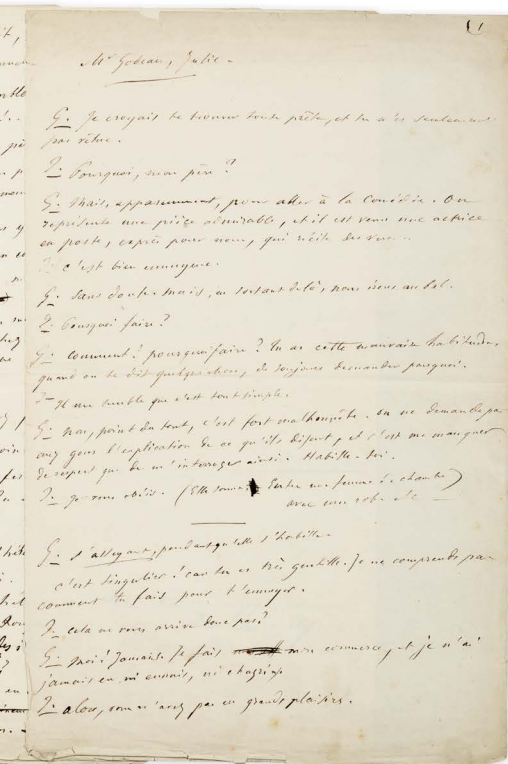 1
Mr Godeau, Julie.
G. Je croyais te trouver toute prête, et tu n'es seulement
pas vêtue.
J. Pourquoi, mon père ?
G. Mais, apparemment, pour aller à la Comédie. On
représente une pièce admirable, et il est venu une actrice
en poste, exprès pour nous, qui récite des vers.
J. c'est bien ennuyeux.
G. Sans doute. mais, en sortant de là, nous irons au bal.
J. Pourquoi faire ?
G. Comment ! pourquoi faire ? Tu as cette mauvaise habitude,
quand on te dit quelque chose, de toujours demander pourquoi.
J. Il me semble que c'est tout simple.
G. Non, point du tout, c'est fort malhonnête. on ne demande pas
aux gens l'explication de ce qu'ils disent, et c'est me manquer
de respect que de m'interroger ainsi. Habille-toi.
J. Je vous obéis. (Elle sonne. Entre une femme de chambre
avec une robe etc)
G. s'asseyant, pendant qu'elle s'habille.
c'est singulier ! car tu es très gentille. Je ne comprends pas
comment tu fais pour t'ennuyer.
J. cela ne vous arrive donc pas ?
G. Moi ! Jamais. Je fais mon commerce, et je n'ai
jamais eu ni ennuis, ni chagrins
J. alors, vous n'avez pas eu grands plaisirs.